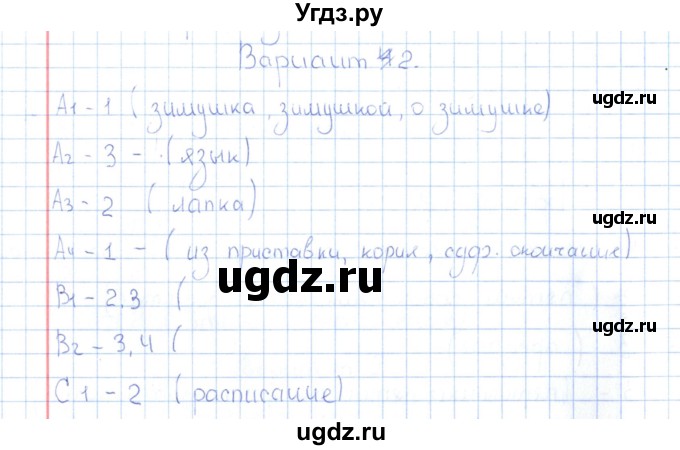 Угдз.ру
Вариант 2.
А1 - 1 ( зимушка, зимушкой, о зимушке)
ugdz.ru
А2 - 3 - (язык)
А3 - 2 ( лапка)
ugdz.ru
А4 - 1 - ( из приставки, корня, суф. окончание)
ugdz.ru
В1 - 2,3 (
ugdz.ru
В2 - 3,4 (
ugdz.ru
С1 - 2 ( расписание)
ugdz.ru